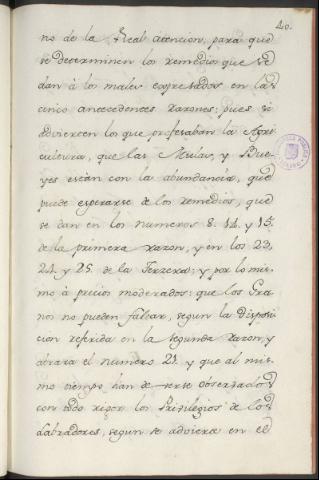 40.
no de la Real atencion, para que
se determinen los remedios que se
dan à los males expresados en las
cinco antecedentes razones; pues si
advierten los que profesaban la Agri
cultura, que las Mulas, y Bue
yes están con la abundancia, que
puede esperarse de los remedios, que
se dan en los numeros 8. 14. y 15.
de la primera razon, y en los 23,
24. y 25. de la Terzera; y por lo mis
mo à precios moderados: que los Gra
nos no pueden faltar, segun la Disposi
cion referida en la segunda razon, y
atrara el numero 21. y que al mis
mo tiempo han de verse observados
con todo rigor los Privilegios de los
Labradores, segun se advierte en el